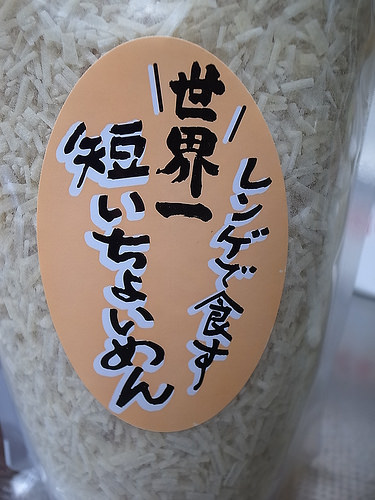 レンゲで食す
世界一
短いちょいめん